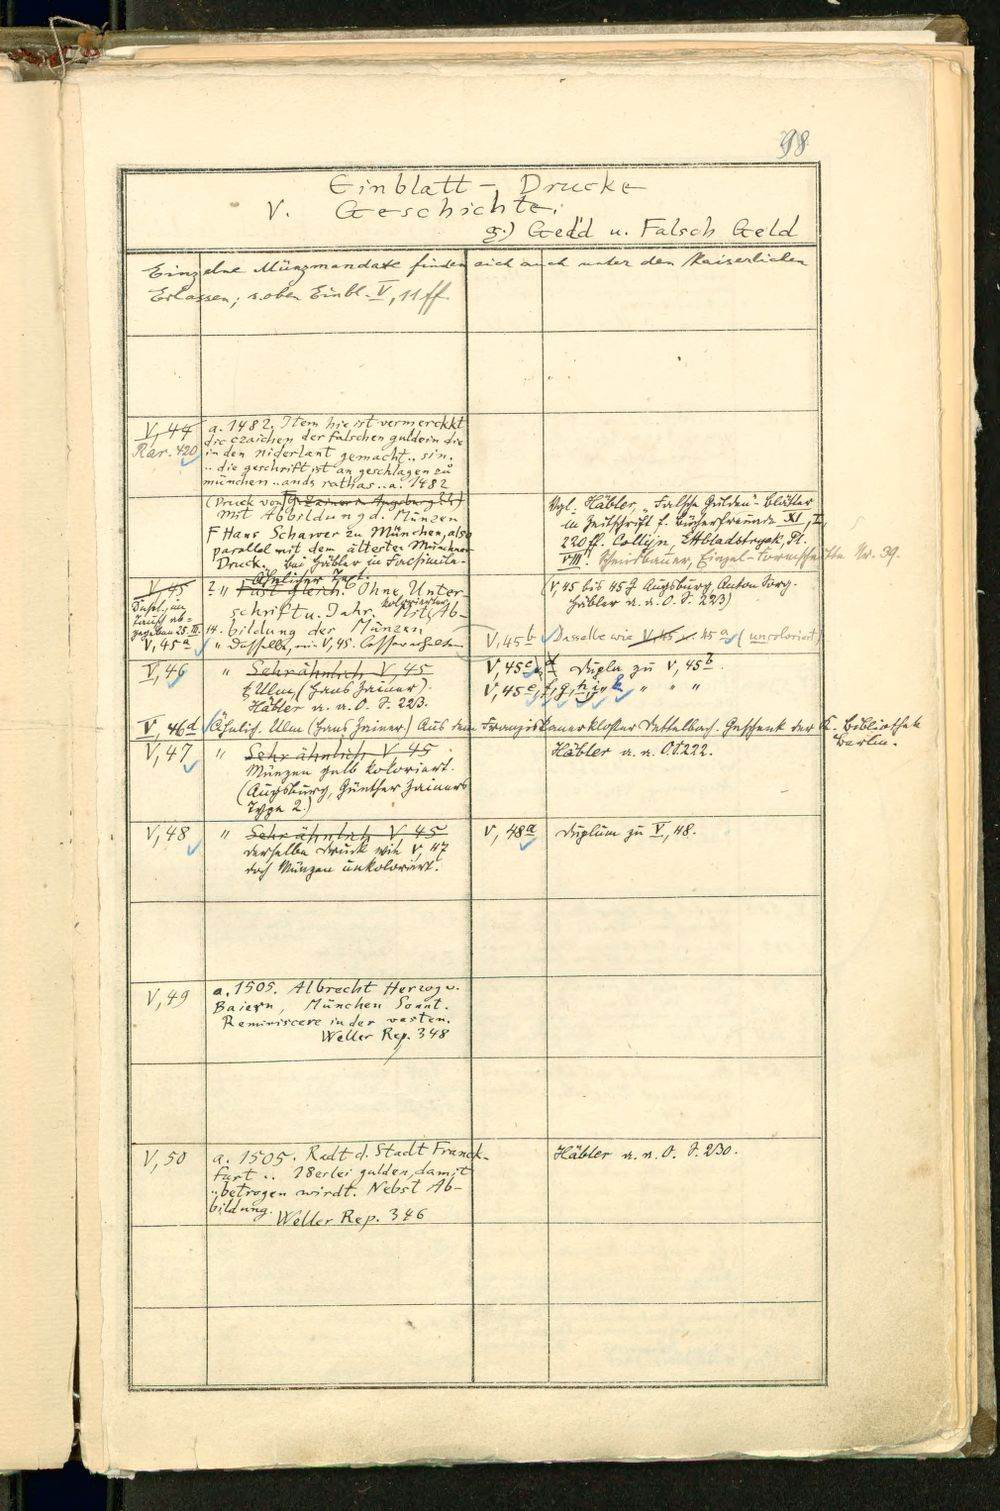 98
Einblatt-Drucke
V. Geschichte.
g.) Geld u. Falsch Geld
Einzelne Münzmandate finden sich auch unter den Kaiserlichen
Erlassen; s. oben Einbl. V, 11 ff.
V, 44
Rar. 420
a. 1482. Item hie ist vermerckkt
die czaichen der falschen guldein die
in den niderlant gemacht .. sin.
.. die geschrift ist an geschlagen zů
münchen .. ands rathas .. a. 1482
(Druck von G. Zainer in Augsburg??)
Mit Abbildung d. Münzen
F Hans Schawer zu München, also
parallel mit dem älteren Münchner
Druck. Bei Häbler in Facsimile.
Vgl. Häbler, "Falsche Gulden"-Blätter
in Zeitschrift f. Bücherfreunde XI, I,
220 ff. Collijn, Ettbladstryck, Pl.
VIII. Schmidbauer, Einzel-Formschnitte Nr. 39.
V, 45
V, 45a
Ähnlicher Text.
? " Fast gleich. Ohne Unter-
schrift u. Jahr. Mit Ab-
kolorierter
bildung der Münzen
" Dasselbe, wie V, 45. besser erhalten
(V, 45 bis 45 g Augsburg Anton Sorg.
Häbler a. a. O. S. 223)
V, 45b Dasselbe wie V, 45 u. 45a (uncoloriert)
V, 46
" Sehr ähnlich V, 45
Ulm, (Hans Zainer).
Häbler a. a. O. S. 223.
V, 45c, d Dupla zu V, 45b.
V, 45e, f, g, h, i, k " " "
V, 46d Ähnlich. Ulm (Hans Zainer) Aus dem Franziskanerkloster Dettelbach. Geschenk der K. Bibliothek
Berlin.
V, 47
" Sehr ähnlich V 45
Münzen gelb koloriert.
(Augsburg, Günther Zainers
Type 2.)
Häbler a. a. O. S. 222.
V, 48
" Sehr ähnlich V, 45
derselbe Druck wie V, 47
doch Münzen unkoloriert.
V, 48a Duplum zu V, 48.
V, 49
a. 1505. Albrecht Herzog v.
Baiern, München Sonnt.
Reminiscere in der vasten.
Weller Rep. 348
V, 50
a. 1505. Radt d. Stadt Franck-
furt .. 18erlei gulden, damit
.. betrogen wirdt. Nebst Ab-
bildung.
Weller Rep. 346
Häbler a. a. O. S. 230.